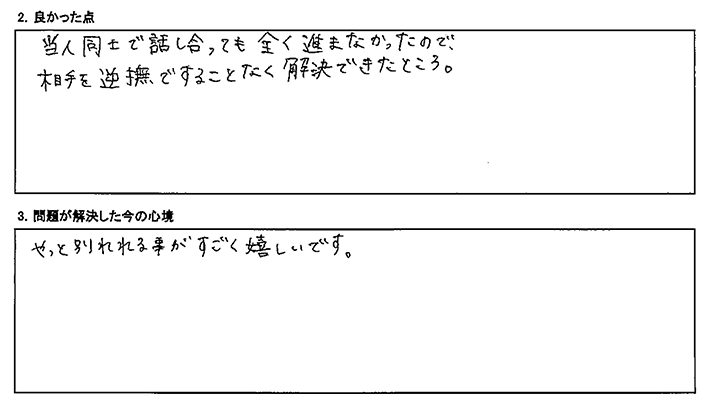 2. 良かった点
当人同士で話し合っても全く進まなかったので、
相手を逆撫ですることなく解決できたところ。
3. 問題が解決した今の心境
やっと別れれる事がすごく嬉しいです。